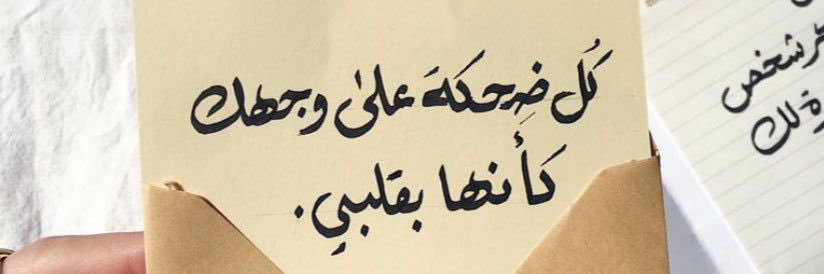 كُل ضِحكَة علىٰ وجهك
كأنها بقلبي.
شخص
لك